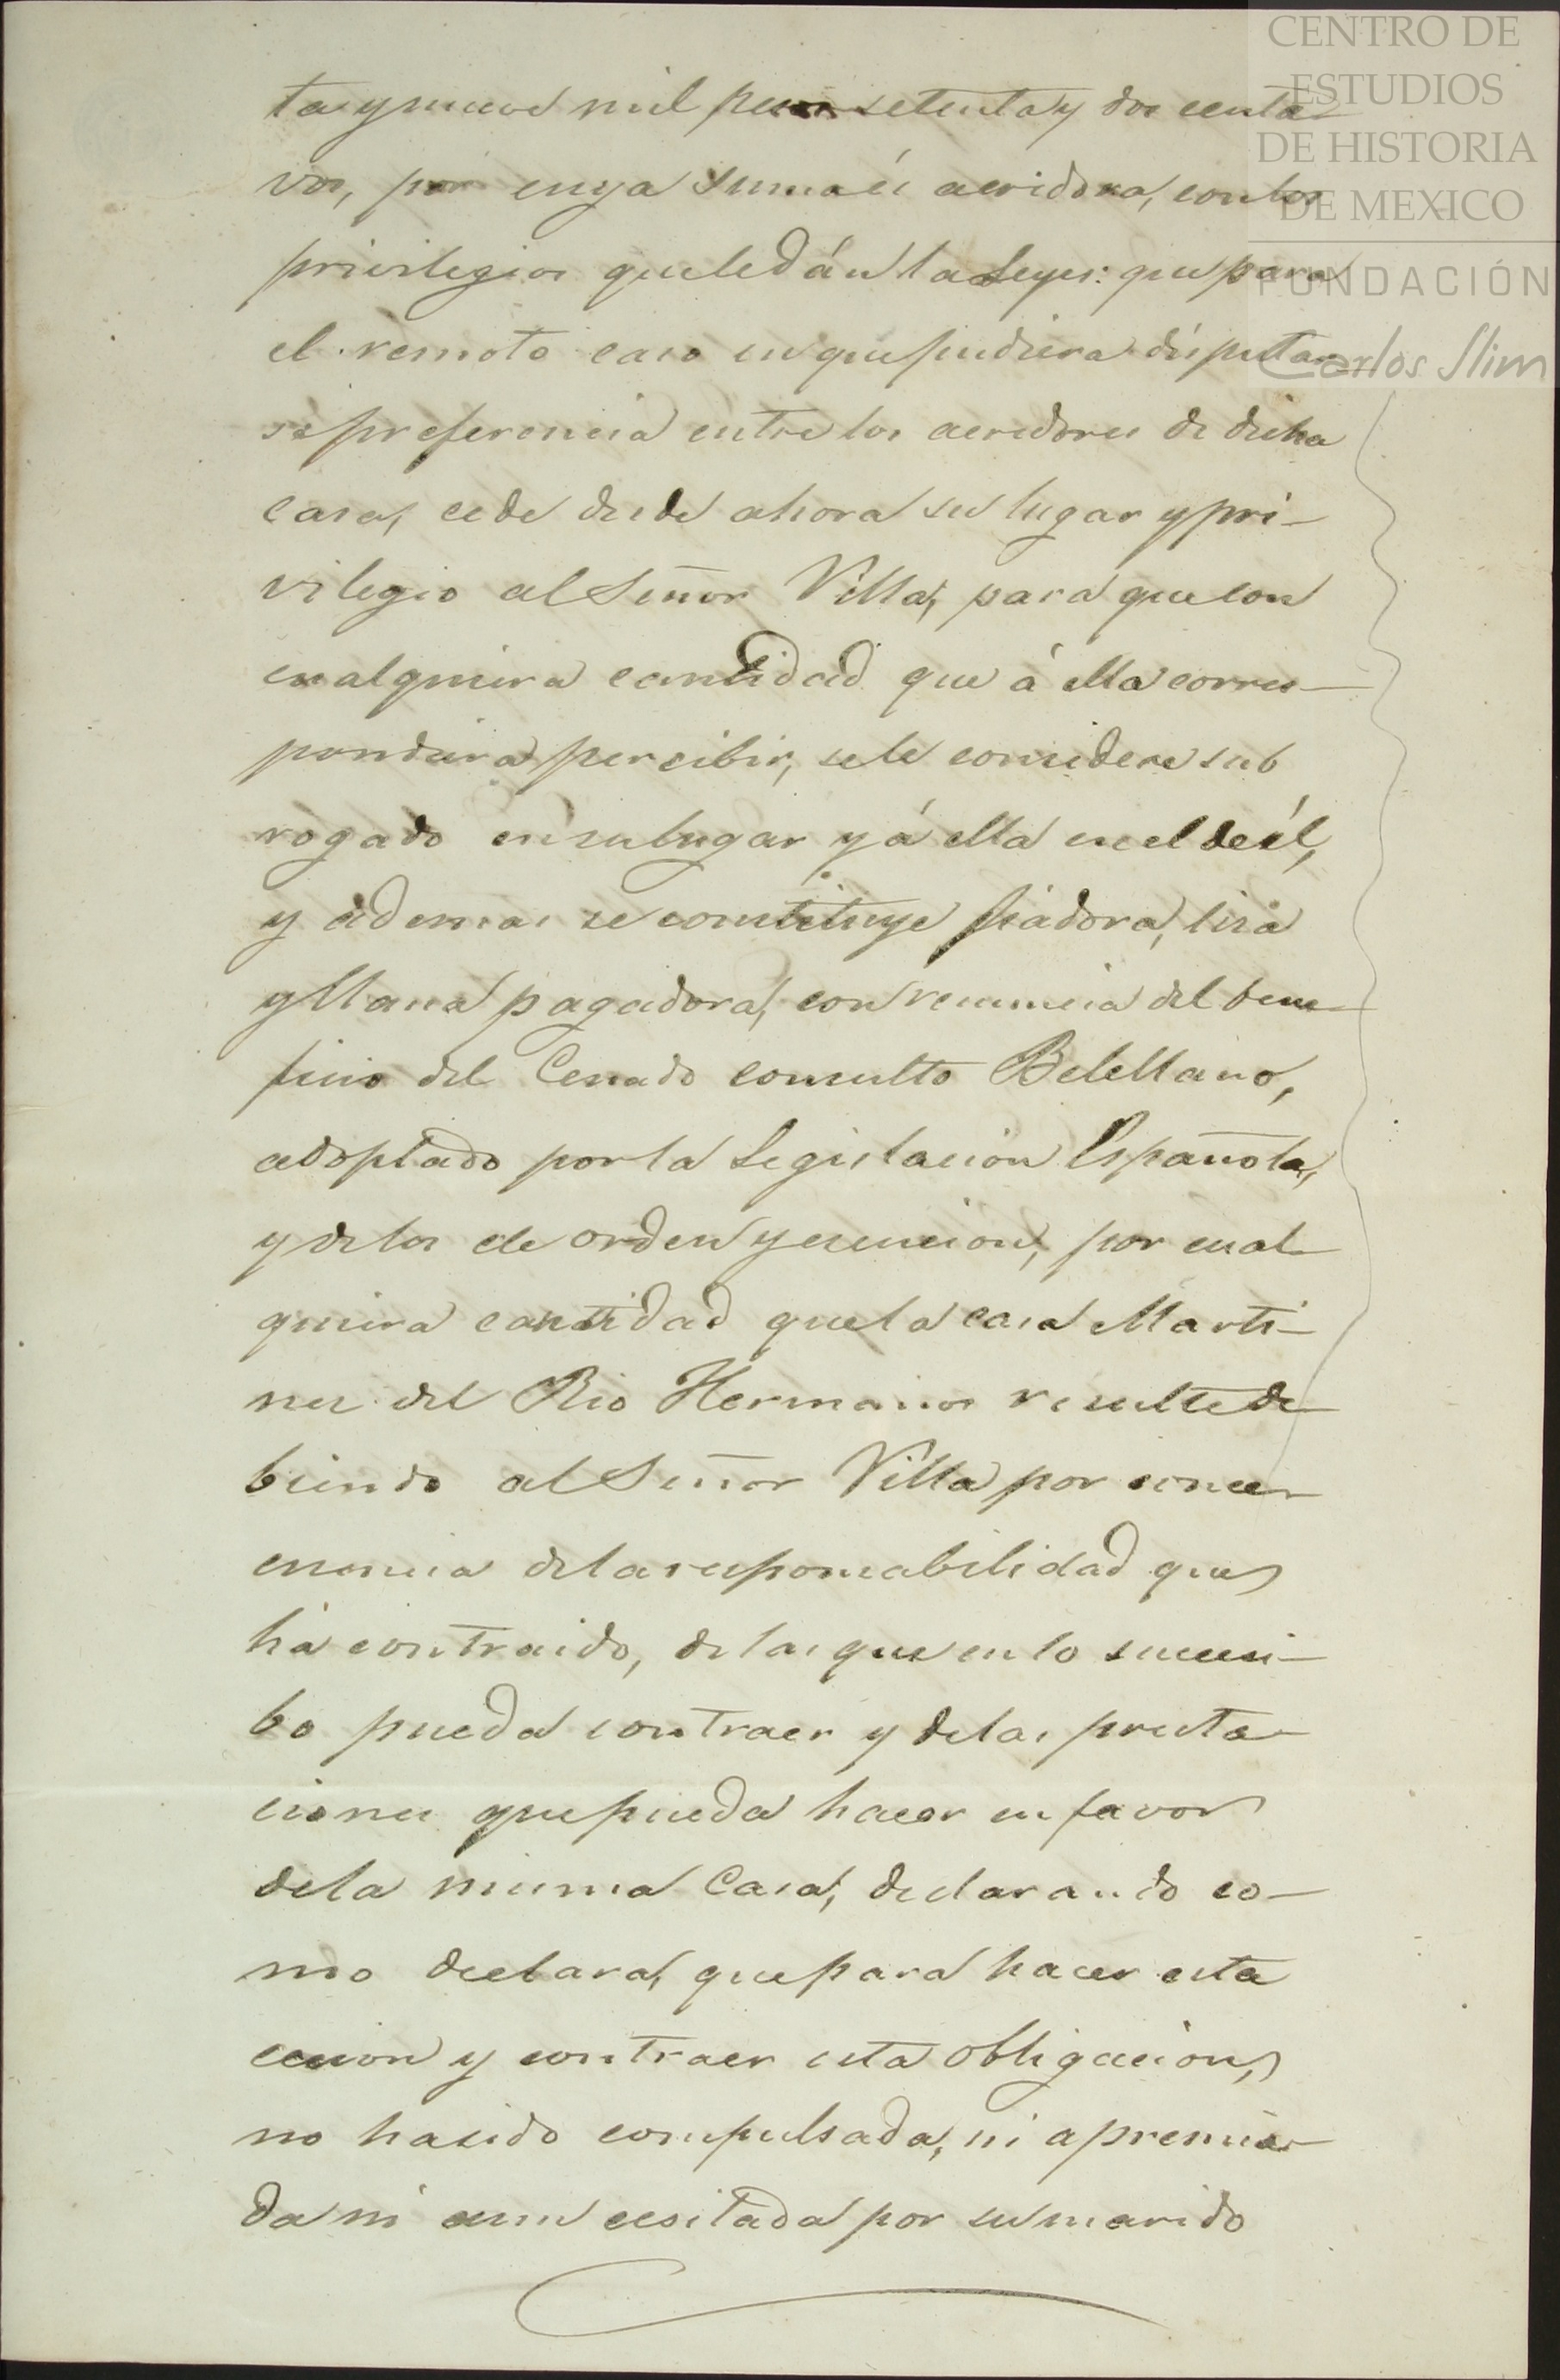 CENTRO DE
ESTUDIOS
DE HISTORIA
DE MEXICO
FUNDACIÓN
Carlos Slim
ta y nueve mil pesos setenta y dos centa-
vos, por cuya suma és acridora, con los
privilegios que le dán las Leyes: que para
el remoto caso en que pudiera disputar
se preferencia entre los acredores de dicha
casa, cede desde ahora su lugar y pri-
vilegio al Señor Villa, para que con
cualquiera cantidad que á ella corres-
pondiera percibir, se le considere sub
rogado en su lugar y á ella en el de él,
y ademas se constituye fiadora, lisa
y llana pagadora, con renuncia del bene-
ficio del Cenado consulto Belellano,
adoptado por la Legislacion Española,
y de los de orden y escucion, por cual-
quiera cantidad que la casa Marti-
nez del Rio Hermanos resulte de-
biendo al Señor Villa por concer
cuencia de la responsabilidad que
há contraido, de las que en lo sucesi-
bo pueda contraer y de las presta-
ciones que pueda hacer en favor
de la misma Casa, declarando co-
mo declara, que para hacer esta
cecion y contraer esta obligacion,
no ha sido compulsada, ni apremia-
da ni aun ecsitada por su marido